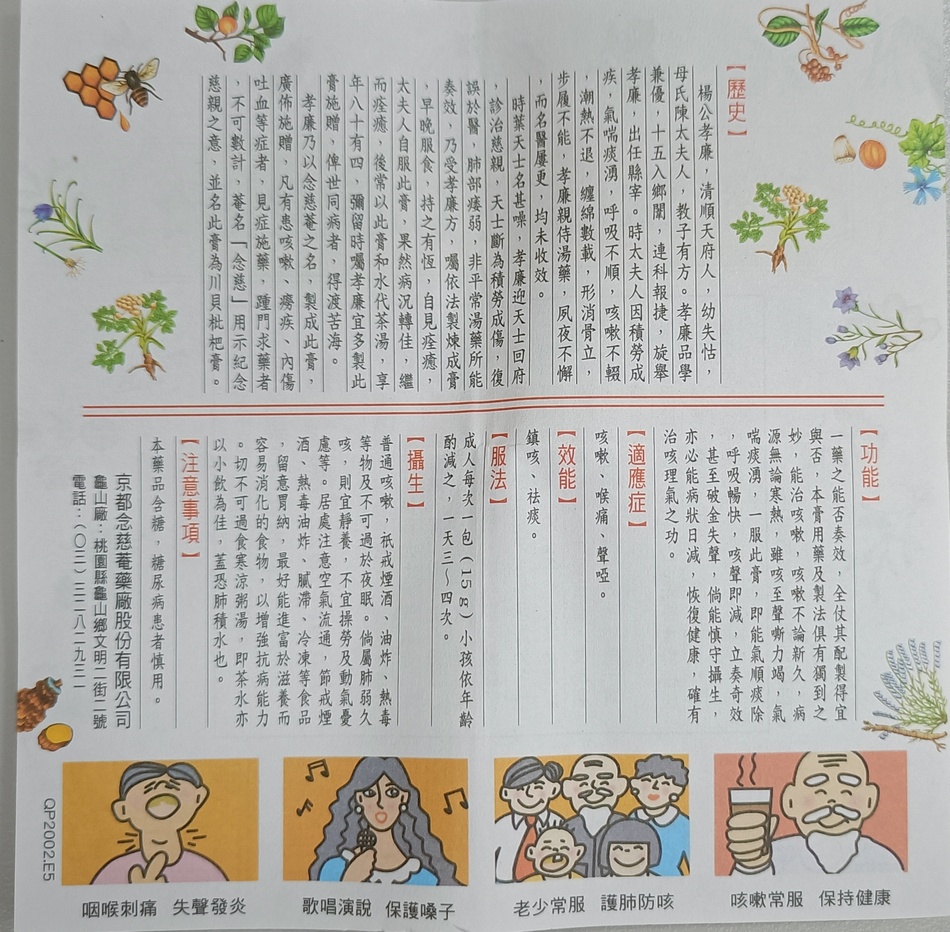 【歷史】
楊公孝廉，清順天府人，幼失怙，
母氏陳太夫人，教子有方。孝廉品學
兼優，十五入鄉闈，連科報捷，旋舉
孝廉，出任縣宰。時太夫人因積勞成
疾，氣喘痰湧，呼吸不順，咳嗽不輟
，潮熱不退，纏綿數載，形消骨立，
步履不能，孝廉親侍湯藥，夙夜不懈
，而名醫屢更，均未收效。
時葉天士名甚噪，孝廉迎天士回府
，診治慈親，天士斷為積勞成傷，復
誤於醫，肺部痿弱，非平常湯藥所能
奏效，乃受孝廉方，囑依法製煉成膏
，早晚服食，持之有恆，自見痊癒，
太夫人自服此膏，果然病況轉佳，繼
而痊癒，後常以此膏和水代茶湯，享
年八十有四，彌留時囑孝廉宜多製此
膏施贈，俾世同病者，得渡苦海。
孝廉乃以念慈菴之名，製成此膏，
廣佈施贈，凡有患咳嗽、癆疾、內傷
吐血等症者，見症施藥，踵門求藥者
，不可數計，菴名「念慈」用示紀念
慈親之意，並名此膏為川貝枇杷膏。
【功能】
一藥之能否奏效，全仗其配製得宜
與否，本膏用藥及製法俱有獨到之
妙，能治咳嗽，咳嗽不論新久，病
源無論寒熱，雖咳至聲嘶力竭，氣
喘痰湧，一服此膏，即能氣順痰除
，呼吸暢快，咳聲即減，立奏奇效
，甚至破金失聲，倘能慎守攝生，
亦必能病狀日減，恢復健康，確有
治咳理氣之功。
【適應症】
咳嗽、喉痛、聲啞。
【效能】
鎮咳、祛痰。
【服法】
成人每次一包(15g)小孩依年齡
酌減之，一天三～四次。
【攝生】
普通咳嗽，祇戒煙酒、油炸、熱毒
等物及不可過於夜眠。倘屬肺弱久
咳，則宜靜養，不宜操勞及動氣憂
慮等。居處注意空氣流通，節戒煙
酒、熱毒油炸、膩滯、冷凍等食品
，留意胃納，最好能進富於滋養而
容易消化的食物，以增強抗病能力
。切不可過食寒涼粥湯，即茶水亦
以小飲為佳，蓋恐肺積水也。
【注意事項】
本藥品含糖，糖尿病患者慎用。
京都念慈菴藥廠股份有限公司
龜山廠：桃園縣龜山鄉文明二街二號
電話：(〇三)三二八二九三一
咳嗽常服 保持健康
老少常服 護肺防咳
歌唱演說 保護嗓子
咽喉刺痛 失聲發炎
QP2002.E5